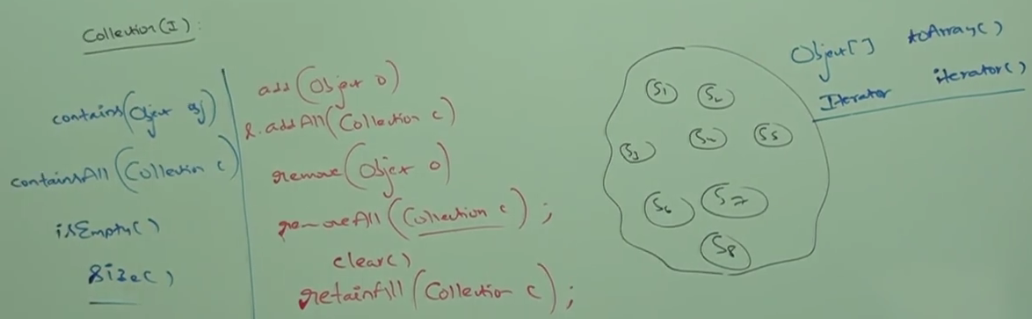 Collection(I):
contains(Object obj)
containsAll(Collection c)
isEmpty()
size()
add(Object o)
&.addAll(Collection c)
remove(Object o)
removeAll(Collection c);
clear()
retainAll(Collection c);
S1 S2
S3 S4 S5
S6 S7
S8
Object[] toArray()
Iterator iterator()